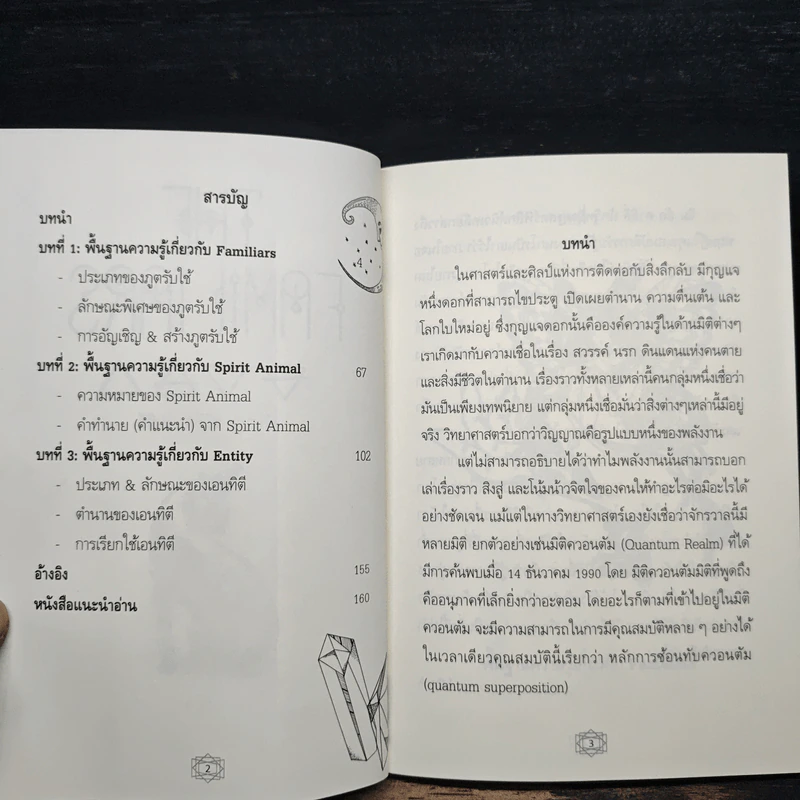 สารบัญ
บทนำ
บทที่ 1: พื้นฐานความรู้เกี่ยวกับ Familiars 4
- ประเภทของภูตรับใช้
- ลักษณะพิเศษของภูตรับใช้
- การอัญเชิญ & สร้างภูตรับใช้
บทที่ 2: พื้นฐานความรู้เกี่ยวกับ Spirit Animal 67
- ความหมายของ Spirit Animal
- คำทำนาย (คำแนะนำ) จาก Spirit Animal
บทที่ 3: พื้นฐานความรู้เกี่ยวกับ Entity 102
- ประเภท & ลักษณะของเอนทิตี
- ตำนานของเอนทิตี
- การเรียกใช้เอนทิตี
อ้างอิง 155
หนังสือแนะนำอ่าน 160
2
บทนำ
ในศาสตร์และศิลป์แห่งการติดต่อกับสิ่งลึกลับ มีกุญแจ
หนึ่งดอกที่สามารถไขประตู เปิดเผยตำนาน ความตื่นเต้น และ
โลกใบใหม่อยู่ ซึ่งกุญแจดอกนั้นคือองค์ความรู้ในด้านมิติต่างๆ
เราเกิดมากับความเชื่อในเรื่อง สวรรค์ นรก ดินแดนแห่งคนตาย
และสิ่งมีชีวิตในตำนาน เรื่องราวทั้งหลายเหล่านี้คนกลุ่มหนึ่งเชื่อว่า
มันเป็นเพียงเทพนิยาย แต่กลุ่มหนึ่งเชื่อมั่นว่าสิ่งต่างๆเหล่านี้มีอยู่
จริง วิทยาศาสตร์บอกว่าวิญญาณคือรูปแบบหนึ่งของพลังงาน
แต่ไม่สามารถอธิบายได้ว่าทำไมพลังงานนั้นสามารถบอก
เล่าเรื่องราว สิงสู่ และโน้มน้าวจิตใจของคนให้ทำอะไรต่อมิอะไรได้
อย่างชัดเจน แม้แต่ในทางวิทยาศาสตร์เองยังเชื่อว่าจักรวาลนี้มี
หลายมิติ ยกตัวอย่างเช่นมิติควอนตัม (Quantum Realm) ที่ได้
มีการค้นพบเมื่อ 14 ธันวาคม 1990 โดย มิติควอนตัมมิติที่พูดถึง
คืออนุภาคที่เล็กยิ่งกว่าอะตอม โดยอะไรก็ตามที่เข้าไปอยู่ในมิติ
ควอนตัม จะมีความสามารถในการมีคุณสมบัติหลาย ๆ อย่างได้
ในเวลาเดียวคุณสมบัตินี้เรียกว่า หลักการซ้อนทับควอนตัม
(quantum superposition)
3